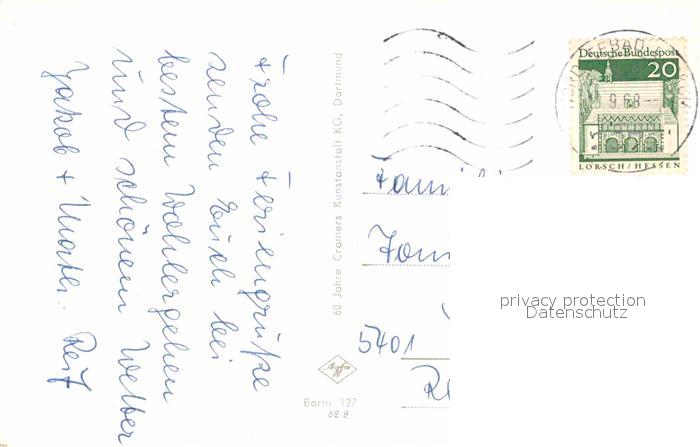 Frohe Feriengrüße
senden Euch bei
bestem Wohlergehen
und schönem Wetter
Jakob + Mathi. Reif
60 Jahre Cramers Kunstanstalt KG, Dortmund
Agfa
Borm 127
62 8
Deutsche Bundespost
20
LORSCH/HESSEN
NORDSEEBAD
9.68
Fami
5401
privacy protection
Datenschutz